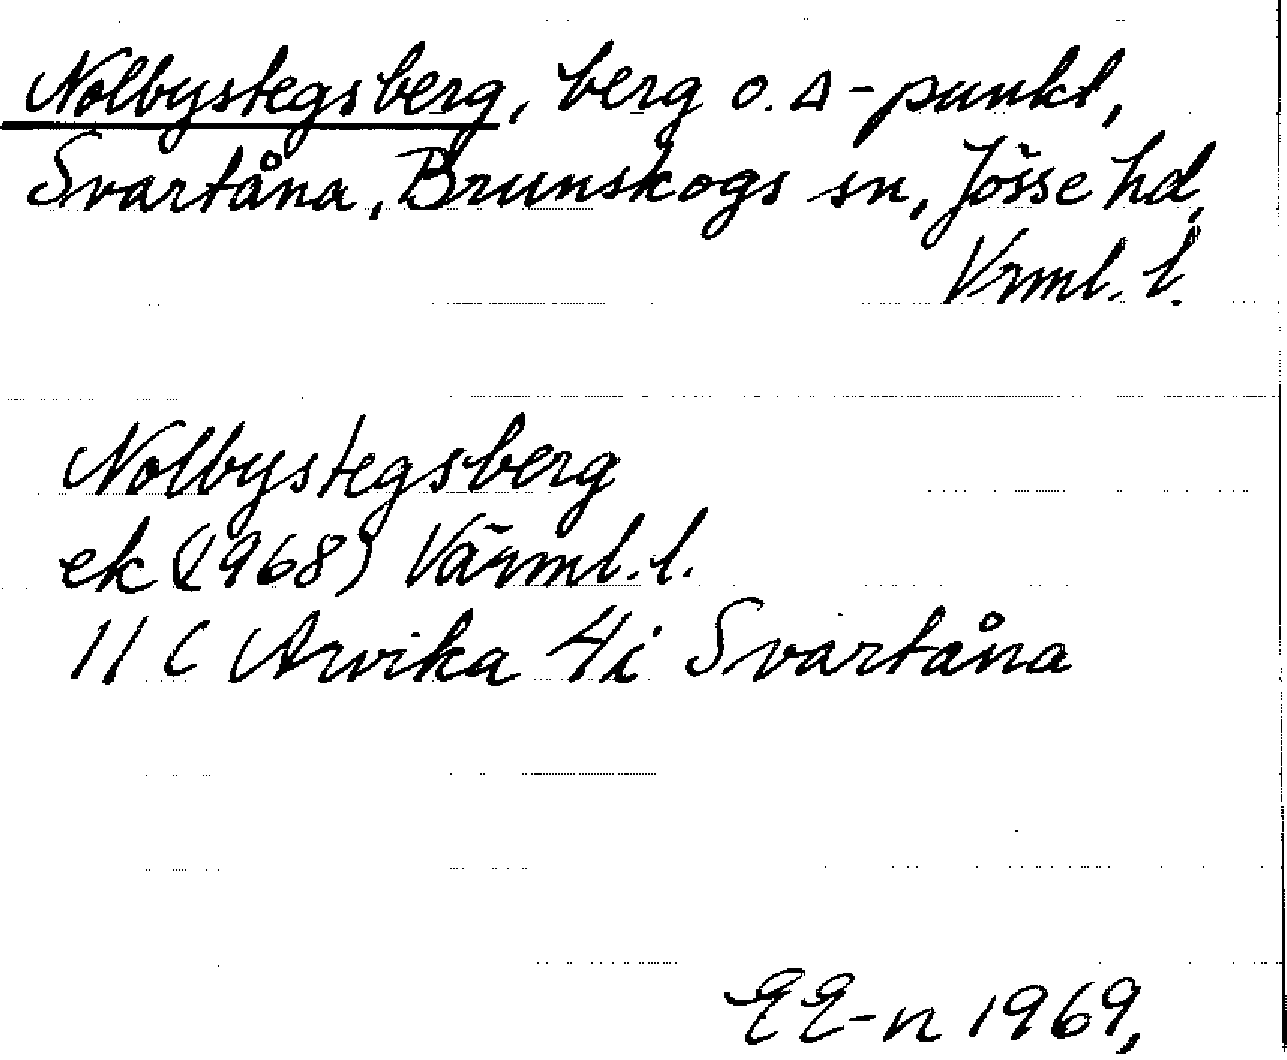 Nolbystegsberg, berg o. Δ-punkt,
Svartåna, Brunskogs sn, Jösse hd,
Vrml. l.
Nolbystegsberg
ek (1968) Värml. l.
11 C Arvika 4i Svartåna
EE-n 1969,